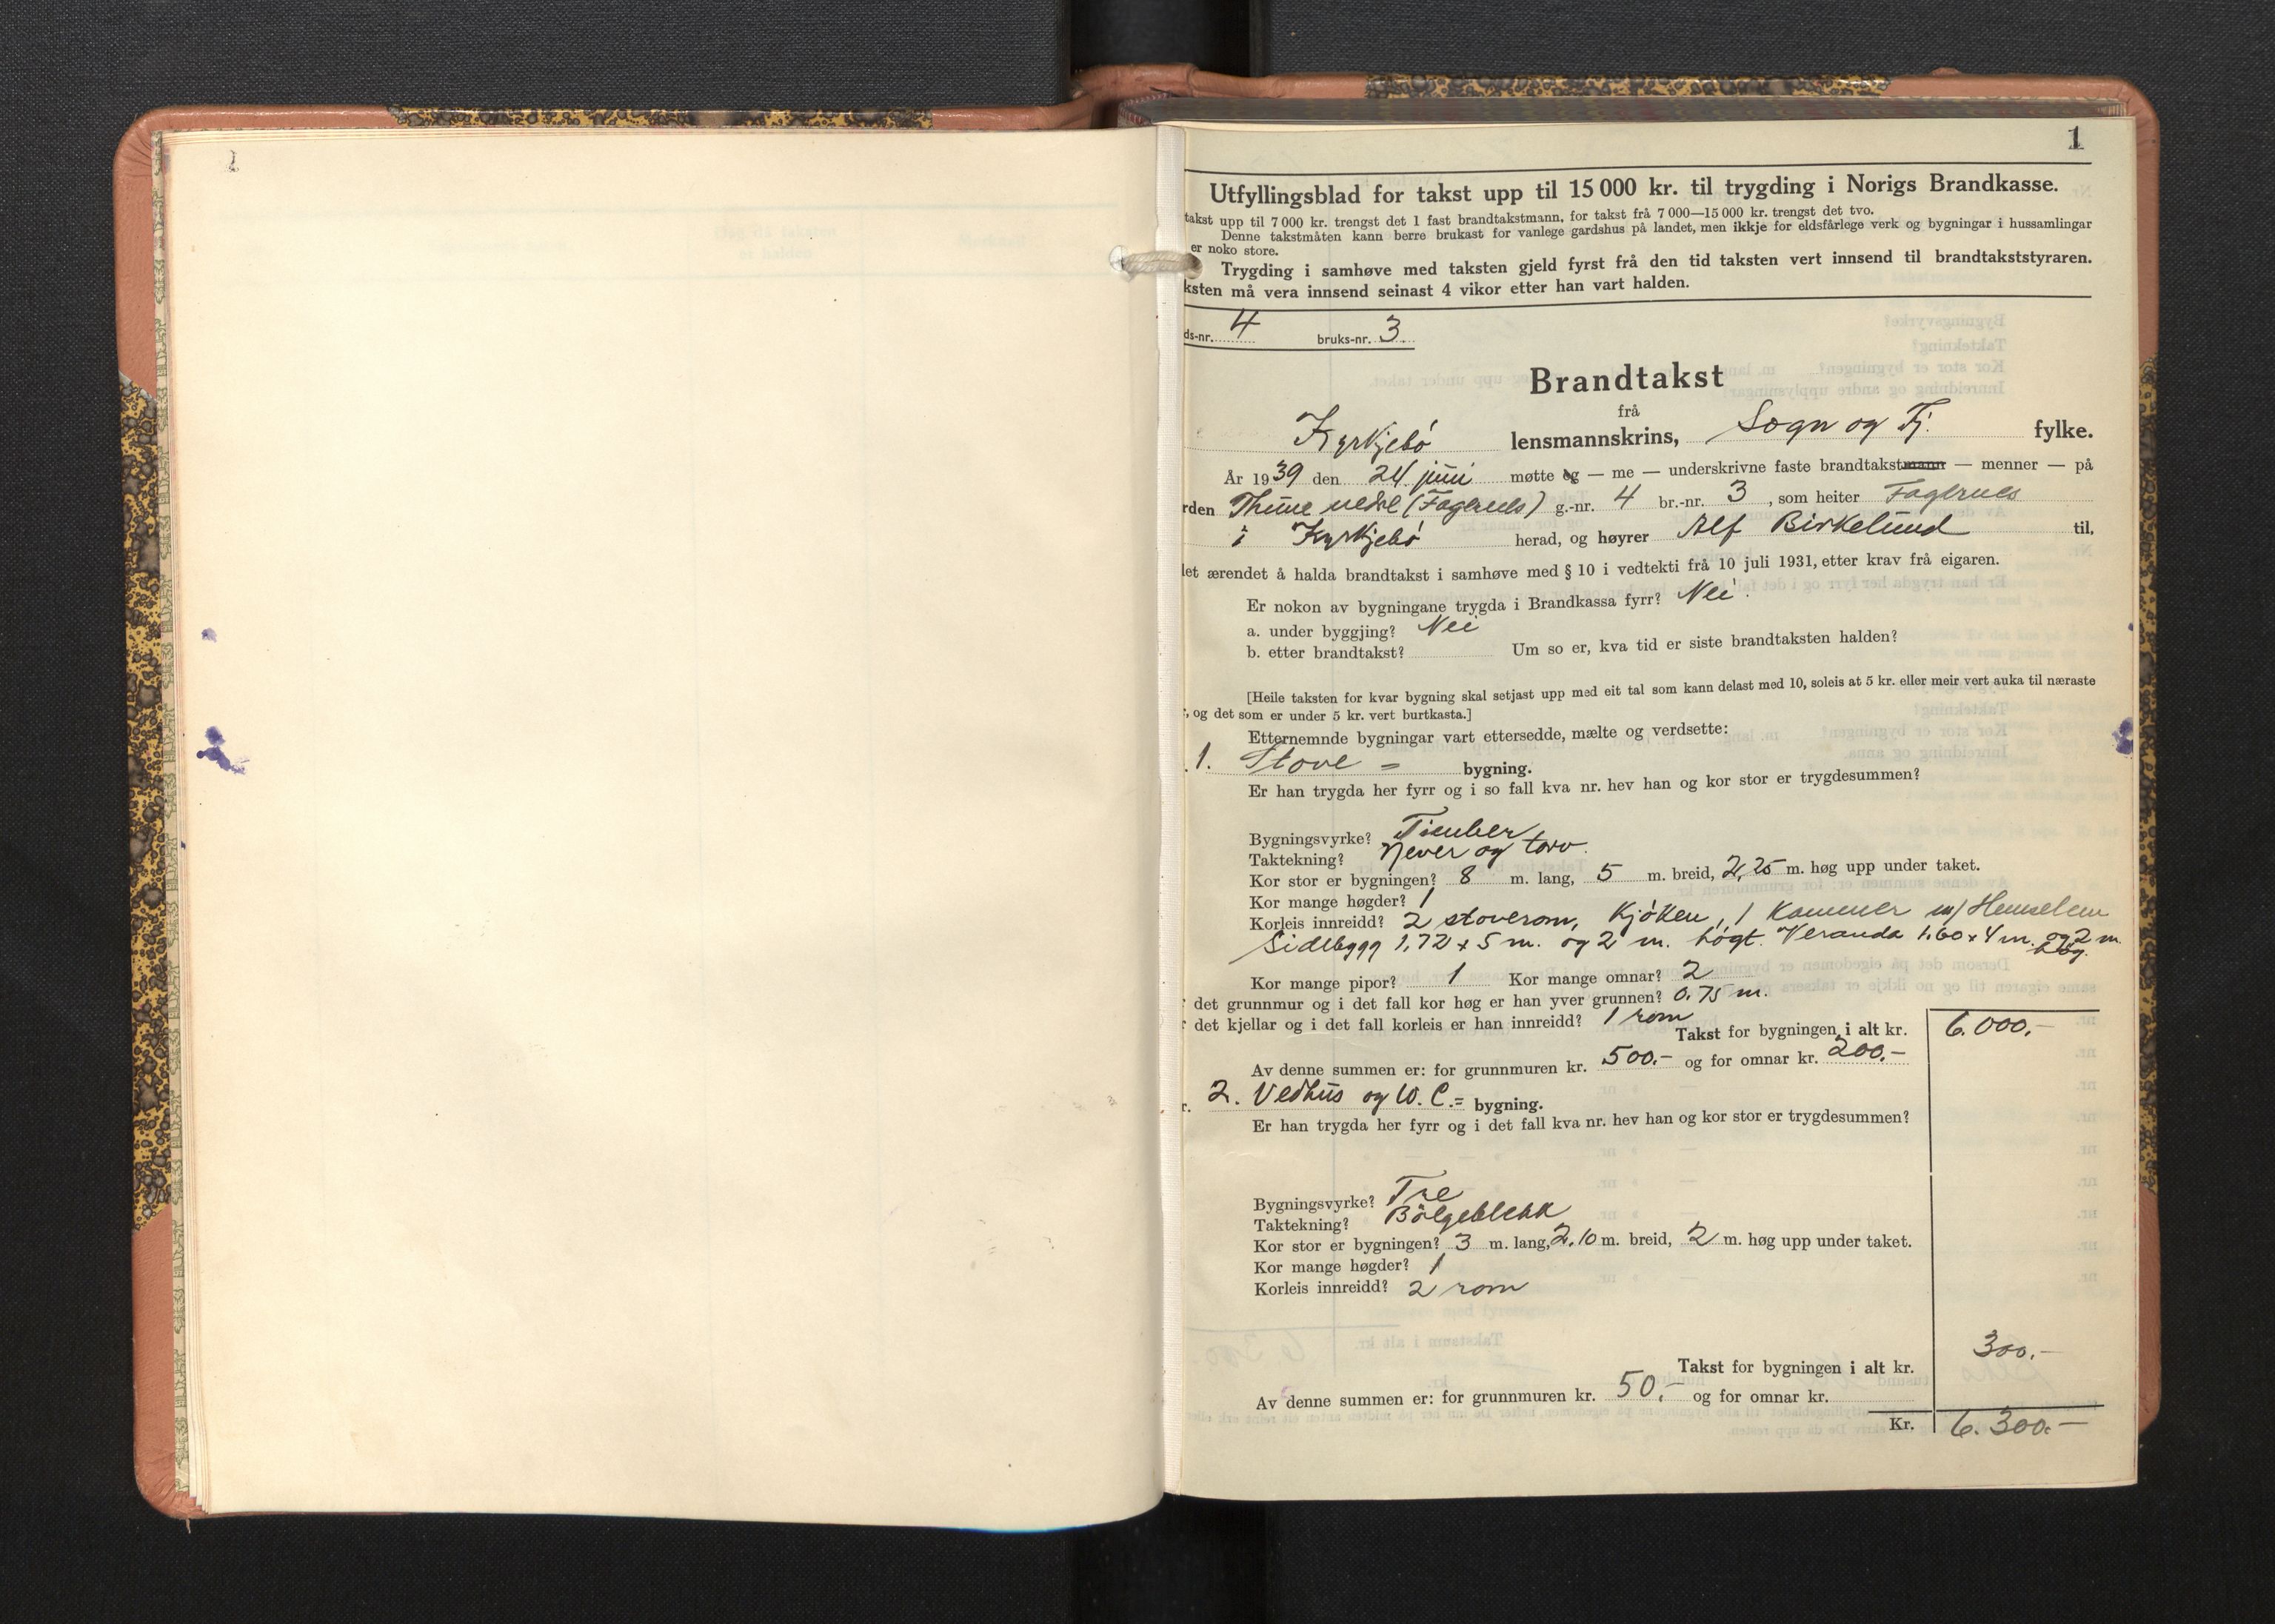 1
1
Utfyllingsblad for takst upp til 15 000 kr. til trygding i Norigs Brandkasse.
takst upp til 7 000 kr. trengst det 1 fast brandtakstmann, for takst frå 7 000—15 000 kr. trengst det tvo.
Denne takstmåten kann berre brukast for vanlege gardshus på landet, men ikkje for eldsfårlege verk og bygningar i hussamlingar
er noko store.
Trygding i samhøve med taksten gjeld fyrst frå den tid taksten vert innsend til brandtakststyraren.
ksten må vera innsend seinast 4 vikor etter han vart halden.
ds-nr. 4 bruks-nr. 3
Brandtakst
frå
Kyrkjebø lensmannskrins, Sogn og Fj. fylke.
År 1939 den 24 juni møtte eg — me — underskrivne faste brandtakstmann — menner — på
rden Thune nedre (Fagernes) g.-nr. 4 br.-nr. 3, som heiter Fagernes
i Kyrkjebø herad, og høyrer Alf Birkelund til.
let ærendet å halda brandtakst i samhøve med § 10 i vedtekti frå 10 juli 1931, etter krav frå eigaren.
Er nokon av bygningane trygda i Brandkassa fyrr? Nei.
a. under byggjing? Nei
b. etter brandtakst? Um so er, kva tid er siste brandtaksten halden?
[Heile taksten for kvar bygning skal setjast upp med eit tal som kann delast med 10, soleis at 5 kr. eller meir vert auka til næraste
, og det som er under 5 kr. vert burtkasta.]
Etternemnde bygningar vart ettersedde, mælte og verdsette:
. 1. Stove = bygning.
Er han trygda her fyrr og i so fall kva nr. hev han og kor stor er trygdesummen?
Bygningsvyrke? Timber
Taktekning? Never og torv.
Kor stor er bygningen? 8 m. lang, 5 m. breid, 2,25 m. høg upp under taket.
Kor mange høgder? 1
Korleis innreidd? 2 stoverom, Kjøken, 1 Kammer m/ Hemselem
Sidebygg 1,72 x 5 m. og 2 m. høgt. Veranda 1.60 x 4 m. og 2 m.
høg.
Kor mange pipor? 1 Kor mange omnar? 2
det grunnmur og i det fall kor høg er han yver grunnen? 0.75 m.
det kjellar og i det fall korleis er han innreidd? 1 rom
Takst for bygningen i alt kr. 6.000.-
Av denne summen er: for grunnmuren kr. 500.- og for omnar kr. 200.-
r. 2. Vedhus og W.C. = bygning.
Er han trygda her fyrr og i det fall kva nr. hev han og kor stor er trygdesummen?
Bygningsvyrke? Tre
Taktekning? Bölgeblekk
Kor stor er bygningen? 3 m. lang, 2.10 m. breid, 2 m. høg upp under taket.
Kor mange høgder? 1
Korleis innreidd? 2 rom
Takst for bygningen i alt kr. 300.-
Av denne summen er: for grunnmuren kr. 50.- og for omnar kr.
Kr. 6.300.-